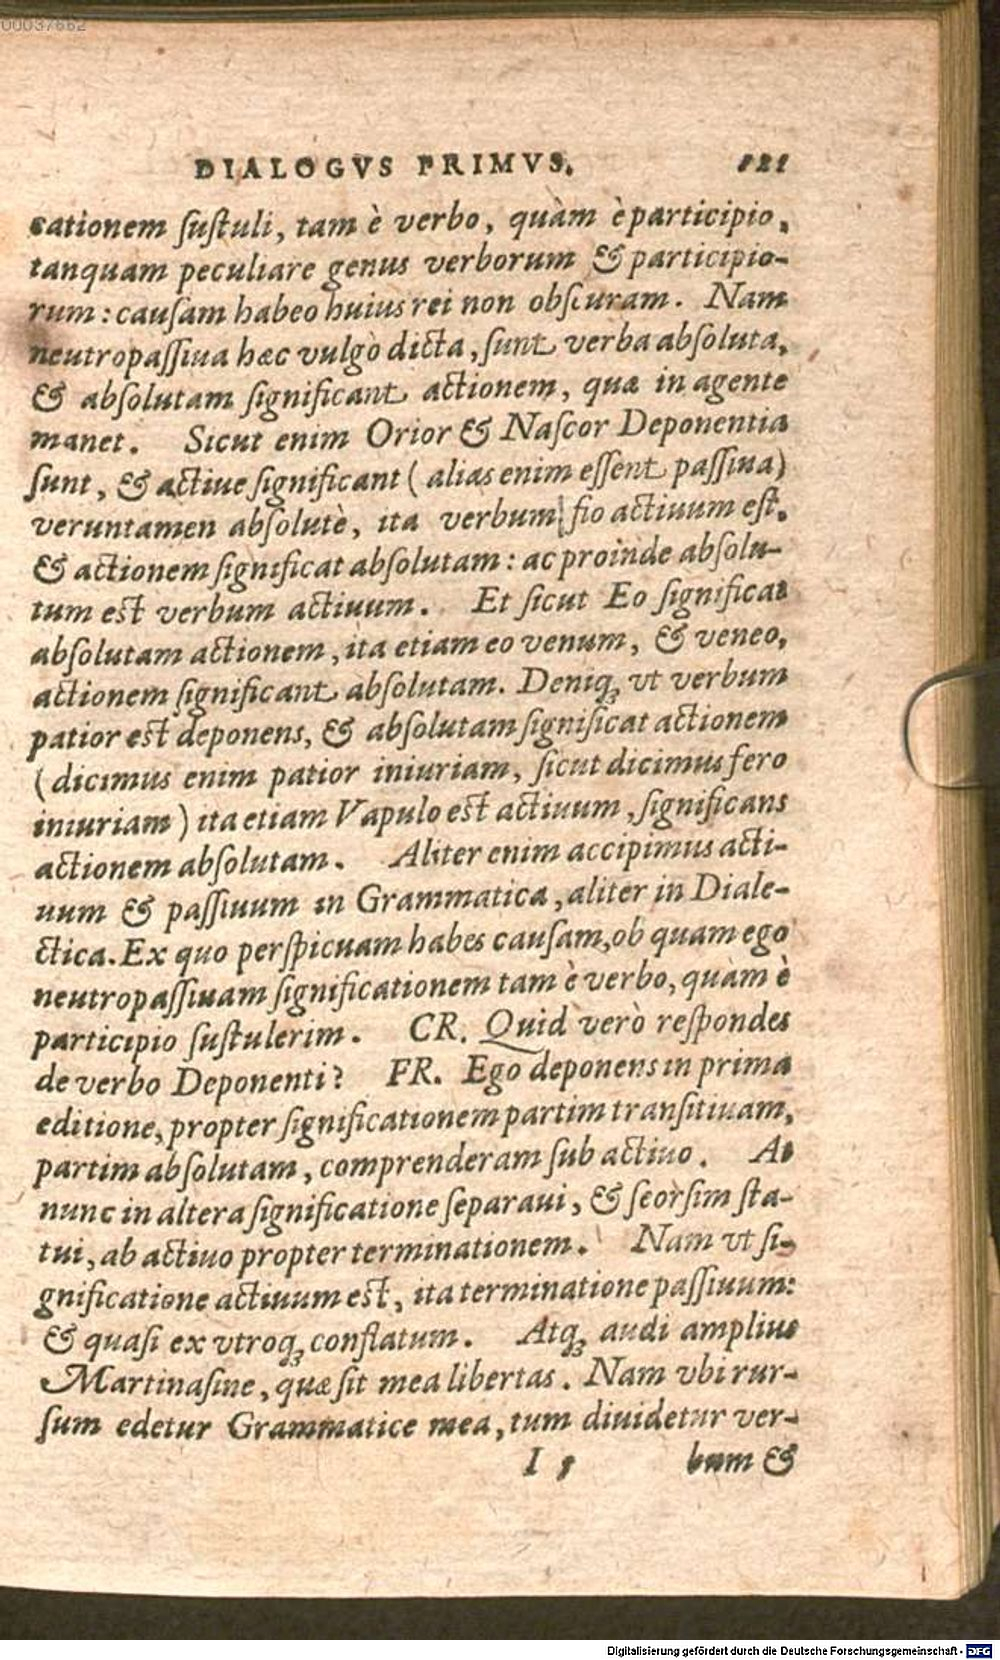 00037662
DIALOGVS PRIMVS. 121
cationem ſuſtuli, tam è verbo, quàm è participio,
tanquam peculiare genus verborum & participio-
rum: cauſam habeo huius rei non obſcuram. Nam
neutropaſſiua hæc vulgò dicta, ſunt verba abſoluta,
& abſolutam ſignificant actionem, quæ in agente
manet. Sicut enim Orior & Naſcor Deponentia
ſunt, & actiue ſignificant (alias enim eſſent paſſiua)
veruntamen abſolutè, ita verbum fio actiuum eſt,
& actionem ſignificat abſolutam: ac proinde abſolu-
tum eſt verbum actiuum. Et ſicut Eo ſignificat
abſolutam actionem, ita etiam eo venum, & veneo,
actionem ſignificant abſolutam. Deniq; vt verbum
patior eſt deponens, & abſolutam ſignificat actionem
(dicimus enim patior iniuriam, ſicut dicimus fero
iniuriam) ita etiam Vapulo eſt actiuum, ſignificans
actionem abſolutam. Aliter enim accipimus acti-
uum & paſſiuum in Grammatica, aliter in Diale-
ctica. Ex quo perſpicuam habes cauſam, ob quam ego
neutropaſſiuam ſignificationem tam è verbo, quàm è
participio ſuſtulerim. CR. Quid verò reſpondes
de verbo Deponenti? FR. Ego deponens in prima
editione, propter ſignificationem partim tranſitiuam,
partim abſolutam, comprenderam ſub actiuo. At
nunc in altera ſignificatione ſeparaui, & ſeorſim ſta-
tui, ab actiuo propter terminationem. Nam vt ſi-
gnificatione actiuum eſt, ita terminatione paſſiuum:
& quaſi ex vtroq; conflatum. Atq; audi amplius
Martinaſine, quæ ſit mea libertas. Nam vbi rur-
ſum edetur Grammatice mea, tum diuidetur ver-
I bum &
Digitalisierung gefördert durch die Deutsche Forschungsgemeinschaft - DFG